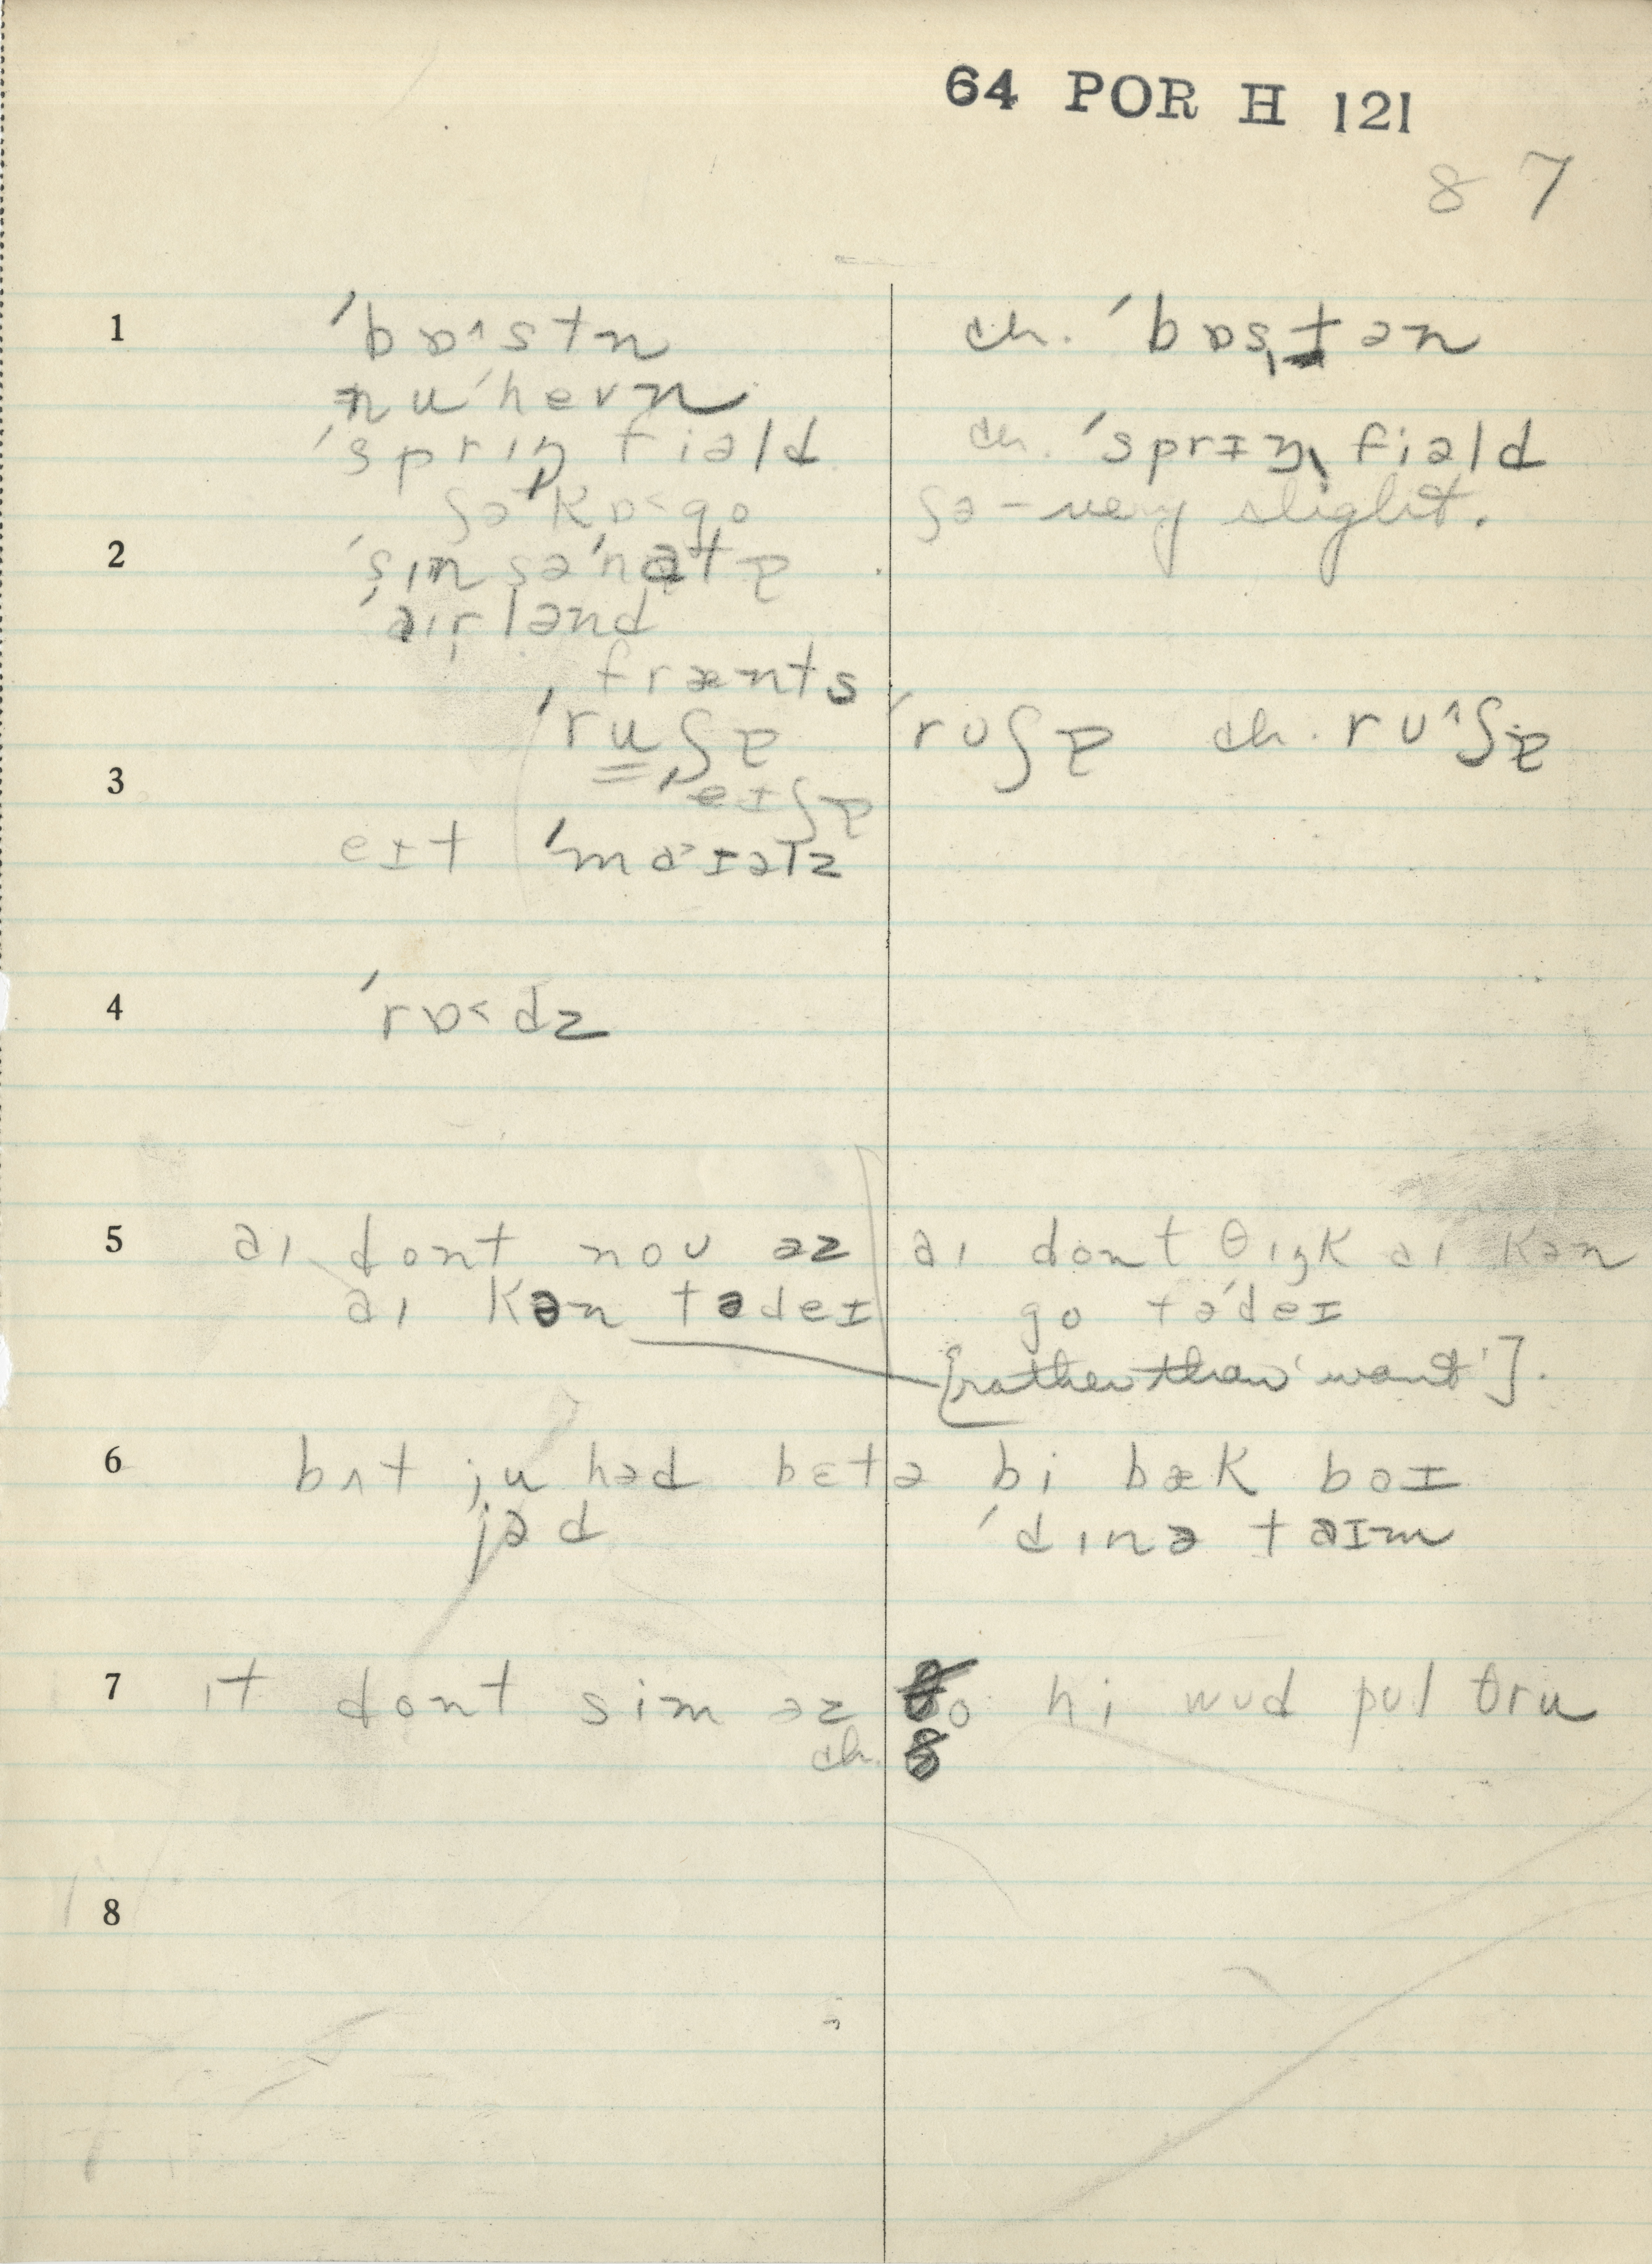 64 POR H 121
8 7
1 ˈbɒ˄stn ch. ˈbɒsˌtən
nuˈhevn
ˈsprɪŋ fiəld ch. ˈsprɪŋˌfiəld
ʃəˈkɒ˂go ʃə – very slight.
2 ˈsɪnsəˈnatɐ
ˈaɪrlənd
frænts
ˈruʃɐ ˈrʊʃɐ ch. rʊ˄ʃɐ
3 ˈeɪʃɐ
eɪt ˈmaɪəlz
4 ˈrɒ˂dz
5 aɪ dont noʊ əz aɪ dont θɪŋk aɪ kən
aɪ kən tədeɪ go təˈdeɪ
[rather than 'want'].
6 bʌt ju həd betə bi bæk baɪ
jəd ˈdɪnə taɪm
7 ɪt dont sim əz ðo hi wʊd pʊl θru
ch. ð
8